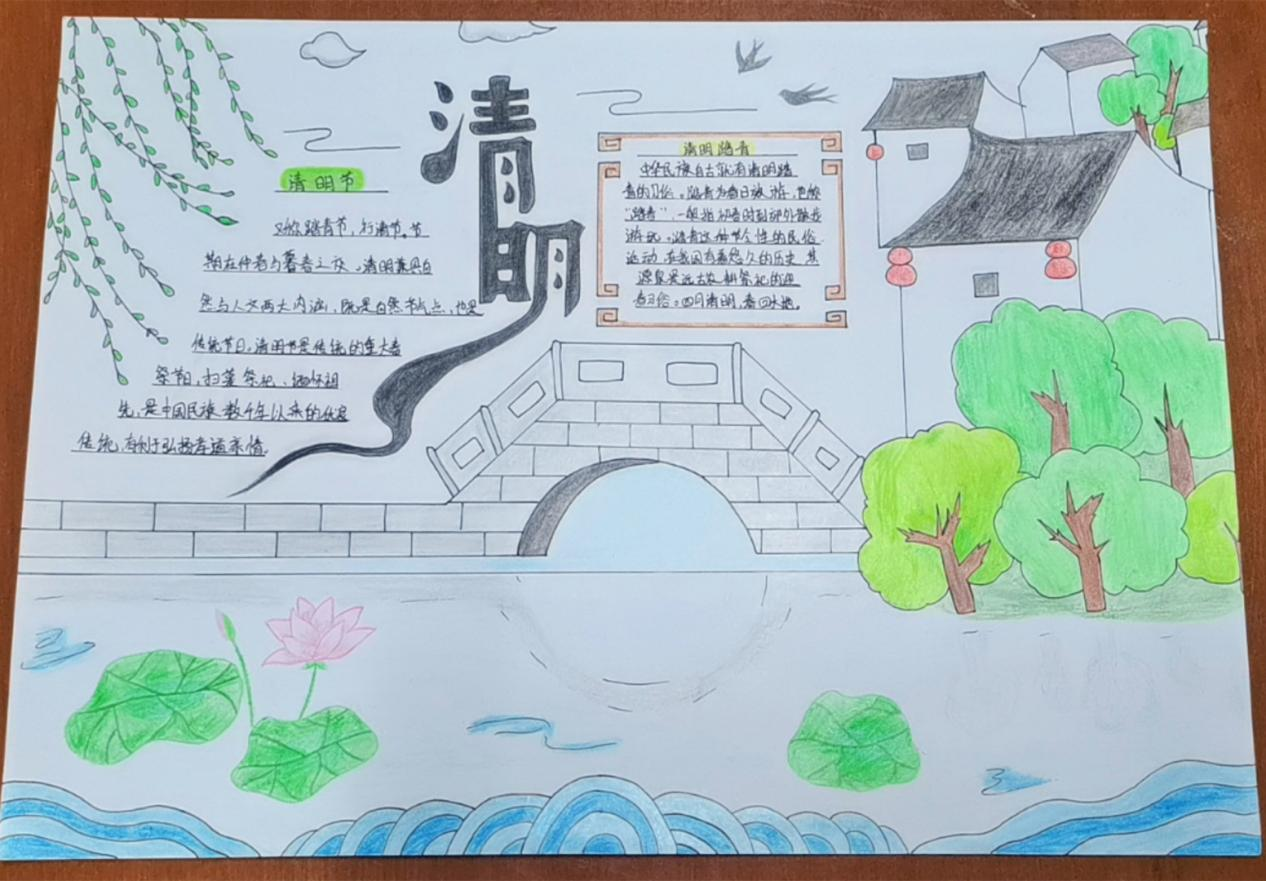 清明
清明节
又称踏青节，行清节。节
期在仲春与暮春之交。清明兼具自
然与人文两大内涵，既是自然节气点，也是
传统节日。清明节是传统的重大春
祭节日，扫墓祭祀、缅怀祖
先，是中国民族数千年以来的优良
传统，有利于弘扬孝道亲情。
清明踏青
中华民族自古就有清明踏
青的习俗。踏青为春日旅游，也称
“踏春”，一般指初春时到郊外散步
游玩。踏青这种节令性的民俗
运动，在我国有着悠久的历史，其
源泉是远古农耕祭祀的迎
春习俗。四月清明，春回大地。